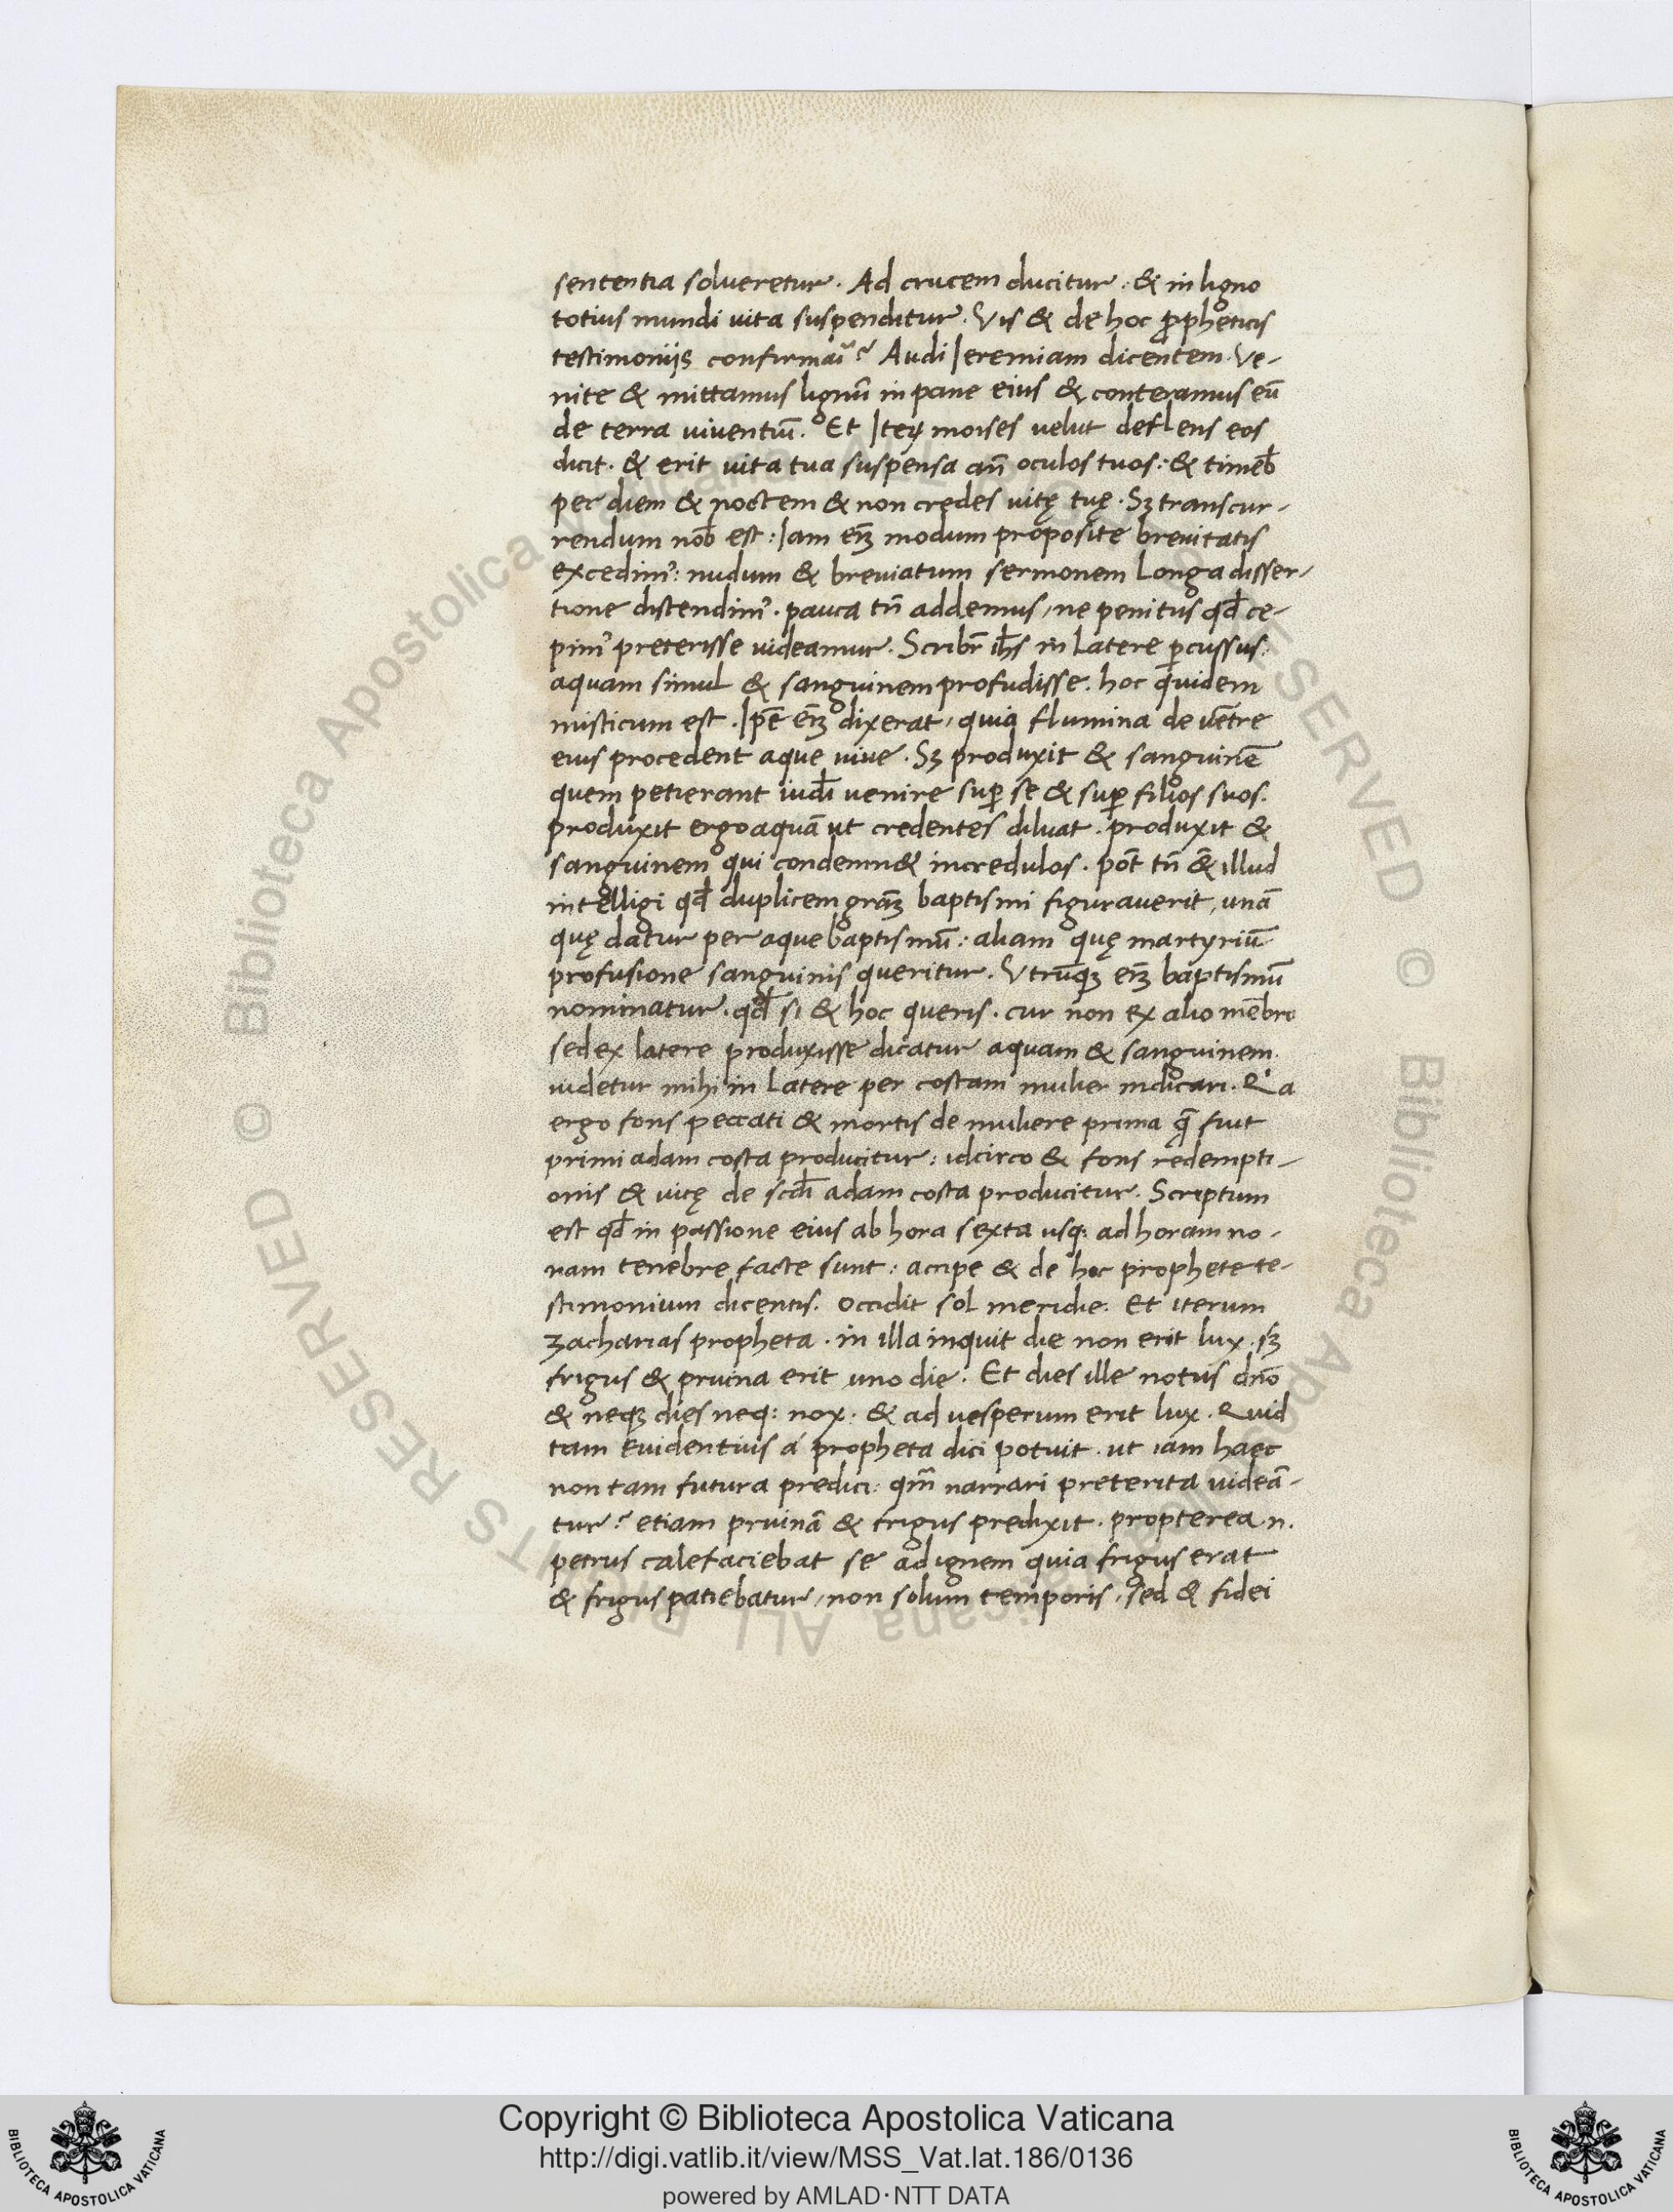 sententia solueretur. Ad crucem ducitur. & in ligno
totius mundi uita suspenditur. Vis & de hoc ꝓpheticis
testimoniis confirmari? Audi Ieremiam dicentem. Ve-
nite & mittamus lignũ in pane eius & conteramus eũ
de terra uiuentiũ. Et Iteꝝ moises uelut deflens eos
dicit. & erit uita tua suspensa añ oculos tuos: & timeb̃
per diem & noctem & non credes uitę tuę. Sꝫ transcur-
rendum nob̃ est: Iam em̃ modum proposite breuitatis
excedimꝰ: nudum & breuiatum sermonem longa disser-
tione distendimꝰ. pauca tñ addemus, ne penitus qđ ce-
pimꝰ preterisse uideamur. Scribr̃ ih̃s in latere ꝑcussus:
aquam simul & sanguinem profudisse. hoc quidem
misticum est. Ip̃e em̃ dixerat, quia flumina de uẽtre
eius procedent aque uiue. Sꝫ produxit & sanguinẽ
quem petierant iud̃i uenire suꝑ se & suꝑ filios suos.
produxit ergo aquã ut credentes diluat. produxit &
sanguinem qui condemn& incredulos. pot̃ tñ & illud
intelligi qđ duplicem grãꝫ baptismi figurauerit, unã
quę datur per aque baptismũ: aliam quę martyriũ
profusione sanguinis queritur. Vtrũqꝫ em̃ baptismũ
nominatur. qđ si & hoc queris. cur non ex alio mẽbro
sed ex latere produxisse dicatur aquam & sanguinem.
uidetur mihi in latere per costam mulier indicari. Qͥa
ergo fons peccati & mortis de muliere prima q̃ fuit
primi adam costa producitur: idcirco & fons redempti-
onis & uitę de scđi adam costa producitur. Scriptum
est qđ in passione eius ab hora sexta usq: ad horam no-
nam tenebre facte sunt: accipe & de hoc prophete te-
stimonium dicentis. occidit sol meridie. Et iterum
zacharias propheta. in illa inquit die non erit lux. sꝫ
frigus & pruina erit uno die. Et dies ille notus dño
& neqꝫ dies neq: nox: & ad uesperum erit lux. Quid
tam euidentius a propheta dici potuit. ut iam haec
non tam futura predici: qm̃ narrari preterita uideã-
tur? etiam pruinã & frigus predixit. propterea .n.
petrus calefaciebat se ad ignem quia frigus erat
& frigus patiebatur, non solum temporis, sed & fidei
© Biblioteca Apostolica Vaticana ALL RIGHTS RESERVED © Biblioteca Apostolica Vaticana ALL RIGHTS RESERVED
BIBLIOTECA APOSTOLICA VATICANA
Copyright © Biblioteca Apostolica Vaticana
http://digi.vatlib.it/view/MSS_Vat.lat.186/0136
powered by AMLAD·NTT DATA
BIBLIOTECA APOSTOLICA VATICANA